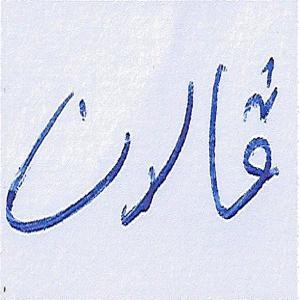 قارن